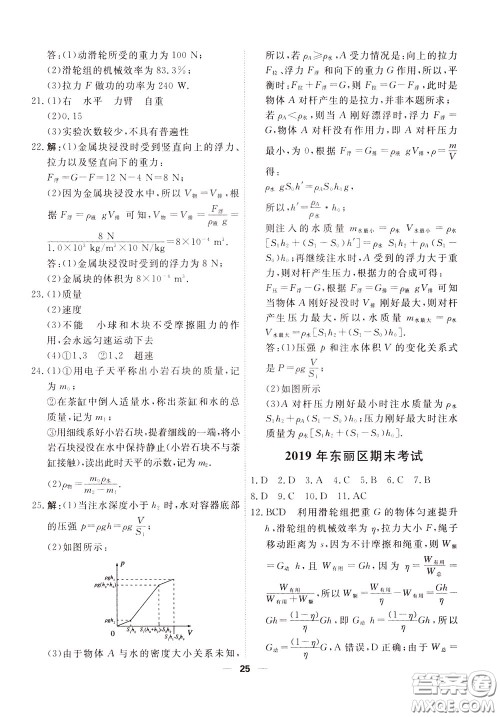 答:(1)动滑轮所受的重力为 100 N;
(2)滑轮组的机械效率为 83.3%;
(3)拉力 F 做功的功率为 240 W.
21.(1)右 水平 力臂 自重
(2)0.15
(3)实验次数较少,不具有普遍性
22.解:(1)金属块浸没时受到竖直向上的浮力、
拉力以及竖直向下的重力:
F浮=G−F=12 N−4 N=8 N;
(2)因为金属块浸没水中,所以 V物=V排,根
据 F浮=ρ液 gV排 可知,V物=F浮/ρ水g=
8 N/1.0×10³ kg/m³×10 N/kg=8×10⁻⁴ m³.
答:(1)金属块浸没时受到的浮力为 8 N;
(2)金属块的体积为 8×10⁻⁴ m³.
23.(1)质量
(2)速度
(3)不能 小球和木块不受摩擦阻力的作用,
会永远匀速运动下去
(4)①1、3 ②1、2 超速
24.(1)①用电子天平称出小岩石块的质量,记
为 m₀;
②在茶缸中倒入适量水,称出茶缸和水的总
质量,记为 m₁;
③用细线系好小岩石块,用手提着细线,将小
岩石块浸没在水中保持静止(小岩石块不与茶
缸接触),读出此时天平的示数,记为 m₂.
(2)ρ物=m₀ρ水/m₂−m₁
25.解:(1)当注水深度小于 h₂ 时,水对容器底部
的压强 p=ρgh=ρg V/S₁
(2)如图所示:
p
ρgh₁
ρg(h₂+h₀)
ρgh₂
0
V
(3)由于物体 A 与水的密度大小关系未知,
所以,若 ρA≥ρ水,A 受力情况是:向上的拉力
F拉、浮力 F浮 和向下的重力 G 作用,所以,平
衡时:F拉+F浮=G,则 F拉=G−F浮,此时
物体 A 对杆产生的拉力,并非本题所求;
若 ρA<ρ水,则当 A 刚好漂浮时,F浮=G,
物体 A 对杆没有作用力,即 A 对杆压力
最小,为 0,根据:F浮=G,F浮=G排、ρ=m/V
得:
ρ水 gS₀h′=ρA S₀h₀g,
所以,h′=ρA/ρ水·h₀;
则注入的水质量 m水最小=ρ水V水最小=ρ水
[S₁h₂+(S₁−S₀)h′];再继续注水时,A 受
到的浮力大于重力,根据力的合成可得:
F压=F浮−G,根据 F浮=G排 可知
当物体 A 刚好浸没时 V排 刚好最大,则对杆
产生压力最大,所以,注水质量 m水最大=ρ水
V水最大=ρ水[S₁h₂+(S₁−S₀)h₀]
答:(1)压强和注水体积 V 的变化关系式
是 P=ρg V/S₁;
(2)如图所示
(3)A 对杆压力刚好最小时注水质量为 ρ水
S₁h₂+ρA(S₁−S₀)h₀;压力刚好最大时注水
质量为 ρ水[S₁h₂+(S₁−S₀)h₀]
2019 年东丽区期末考试
1. D 2. C 3. A 4. D 5. A 6. C 7. B
8. D 9. C 10. D 11. AC
12. BCD 利用滑轮组把重 G 的物体匀速提升
h,滑轮组的机械效率为 η,拉力大小 F,绳子
移动距离为 s,因为不计摩擦和绳重,则 W额
=G动 h,且 W有用=Gh,因为 η=W有用/W总=
W有用/W有用+W额,所以 W额=W有用/η−W有用=Gh/η−
Gh=(1−η)/η Gh,即 G动 h=(1−η)/η Gh,所以
G动=(1−η)/η G,A 错误,D 正确;由于 W总=
25